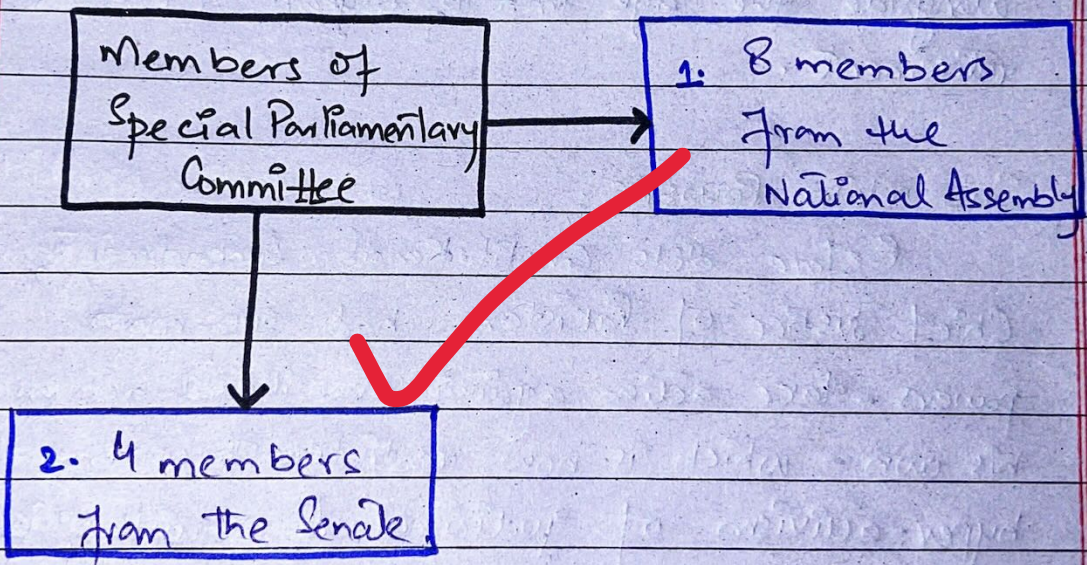 Members of
Special Parliamentary
Committee
1. 8 members
from the
National Assembly
2. 4 members
from the Senate.